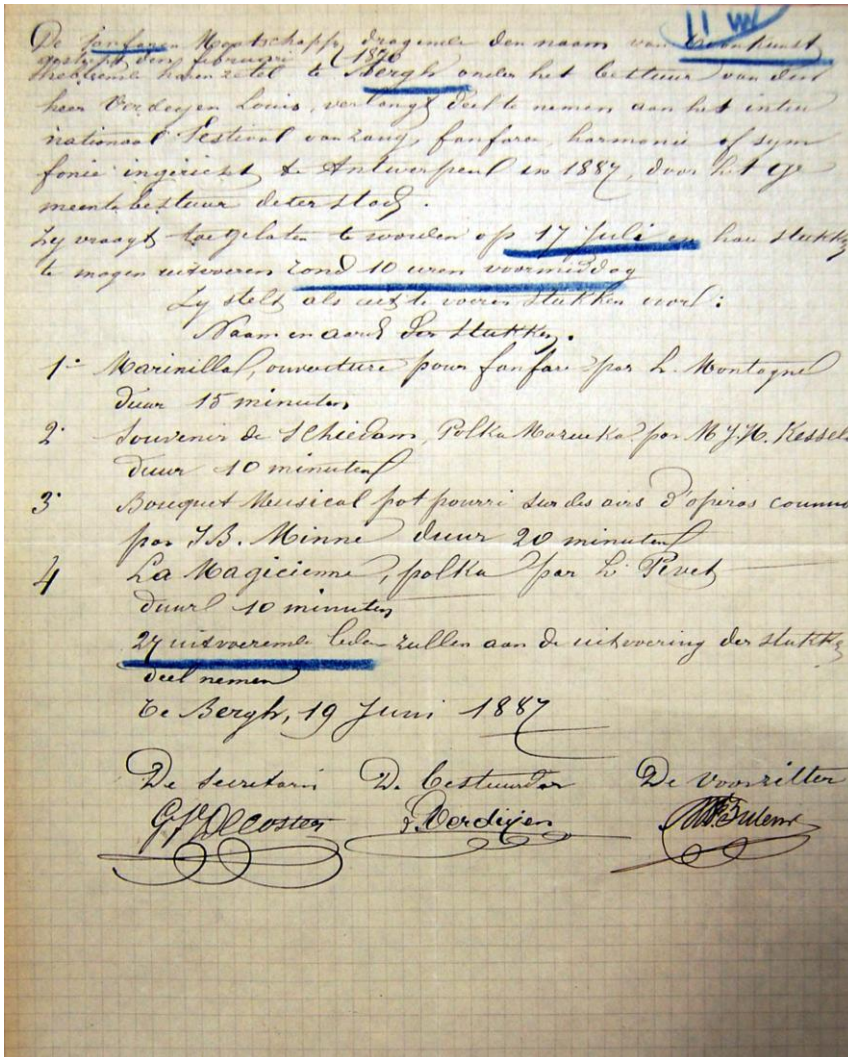 11 W
De fanfaren Maatschappy dragende den naam van Toonkunst
gesticht den februari 1876
hebbende haren zetel te Bergh onder het bestuur van den
heer Verdeyen Louis, verlangt deel te nemen aan het inter
nationaal Festival van zang, fanfaren, harmonie of sym
fonie ingericht te Antwerpen in 1887, door het ge
meente bestuur dezer stad.
Zy vraagt toegelaten te worden op 17 Juli en hare stukken
te mogen uitvoeren rond 10 uren voormiddag
Zy stelt als uit te voeren stukken voor:
Naam en aard der stukken.
1° Marinilla, ouverture pour fanfare par L. Montagne
duur 15 minuten
2° Souvenir de Schiedam, Polka Mazurka par M. J. H. Kessels
duur 10 minuten
3° Bouquet Musical pot pourri sur des airs d'opéras connus
par J B. Minne duur 20 minuten
4 La Magicienne, polka par L. Pivet
duur 10 minuten
27 uitvoerende leden zullen aan de uitvoering der stukken
deel nemen
Te Bergh, 19 Juni 1887
De secretaris De bestuurder De voorzitter
Decoster Verdeyen